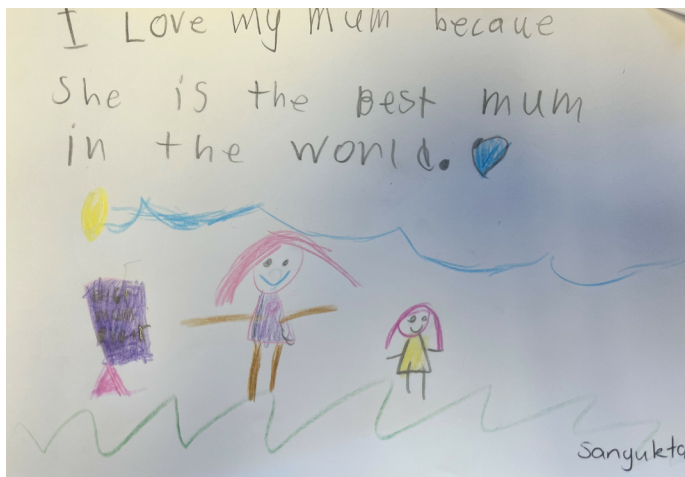 I Love my mum becaue
She is the Best mum
in the world.
Sanyukta